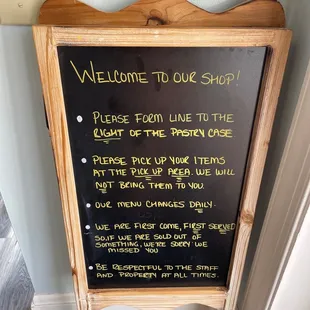 WELCOME TO OUR SHOP!
PLEASE FORM LINE TO THE
RIGHT OF THE PASTRY CASE
PLEASE PICK UP YOUR ITEMS
AT THE PICK UP AREA. WE WILL
NOT BRING THEM TO YOU.
OUR MENU CHANGES DAILY.
WE ARE FIRST COME, FIRST SERVED
SO, IF WE ARE SOLD OUT OF
SOMETHING, WE'RE SORRY WE
MISSED YOU
BE RESPECTFUL TO THE STAFF
AND PROPERTY AT ALL TIMES.